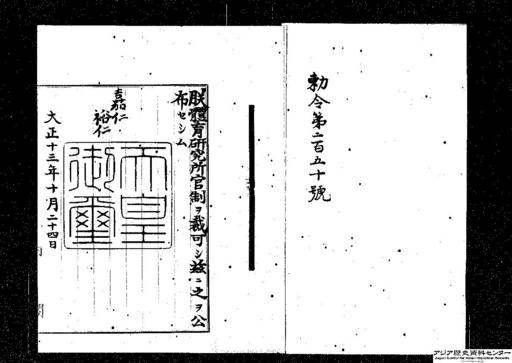 勅令第二百五十號
朕體育研究所官制ヲ裁可シ茲ニ之ヲ公
布セシム
嘉仁
裕仁
天皇
御璽
大正十三年十月二十四日
アジア歴史資料センター
Japan Center for Asian Historical Records